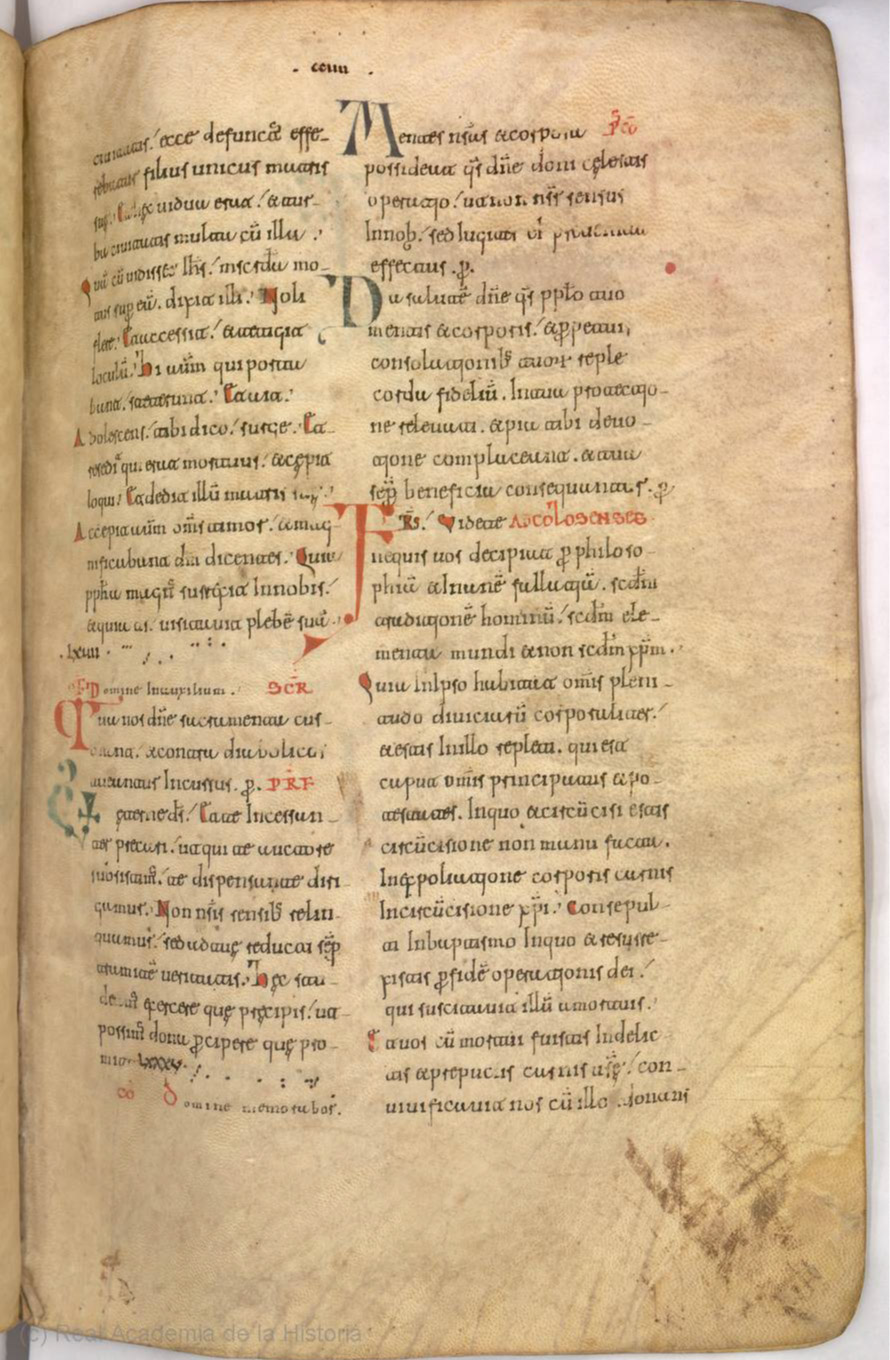 . ccuiii .
ciuitatis. ecce defunctˢ effe-
rebatur filius unicus matris
sue. Et hęc uidua erat. et tur-
ba ciuitatis multa cū illa.
Quā cū uidisset ihs. mscrda mo-
tus sup eū. dixit illi. Noli
flere. Et accessit. et tetigit
loculū. Hi autm qui porta
bant. steterunt. Et ait.
Adolescens. tibi dico. surge. Et re-
sedit qui erat mortuus. et cępit
loqui. Et dedit illū matri suę.
Accepit autm oms timor. et mag-
nificabant dm dicentes. Quia
ppheta magn̄ surrexit In nobis.
et quia ds. uisitauit plebē suā.
Domine In auxilium. SCR
Tua nos dne sacramenta cus-
todiant. et contra diabolicos
tueantur Incursus. p. PRF
ęterne ds. Et te Incessan-
ter precari. ut qui te auctore
subsistim. te dispensante diri
gimus. Non nsis sensib relin-
quamus. sed ad tuę reducti sep
tramitē ueritatis. Hęc stu-
deam exercere quę pręcipis. ut
possim dona percipere quę pro-
mittis
cō Domine memorabor.
Mentes nsas et corpora Pco
possideat qs dne doni cęlestis
operatio. ut non nsr sensus
In nob. sed iugiter ei
effectus. p.
Da salutē dne qs pplo tuo
mentis et corporis. et perpetuis
consolationib tuor reple
corda fidelium. In tua protectio-
ne releuati. et pia tibi deuo-
tione complaceant. et tua
sep beneficia consequantur. p
Frs. Videte Ad colosenses
nequis uos decipiat per philoso-
phia et Inane fallacia. scdm
traditionē hominū. scdm ele-
menta mundi et non scdm xpm.
Quia In Ipso habitat omis pleni-
tudo diuinitatis corporaliter.
et estis In illo repleti. qui est
caput omis principatus et po-
testates. In quo et circūcisi estis
circūcisione non manu facta.
In expoliatione corporis carnis
In circūcisione xpi. Consepul-
ti In baptismo In quo et resurre-
xistis per fidē operationis dei.
qui suscitauit illū a mortuis.
Et uos cū mortui fuistis In delic-
tis et preputiis carnis uestrę. con-
uiuificauit nos cū illo donans
(c) Real Academia de la Historia